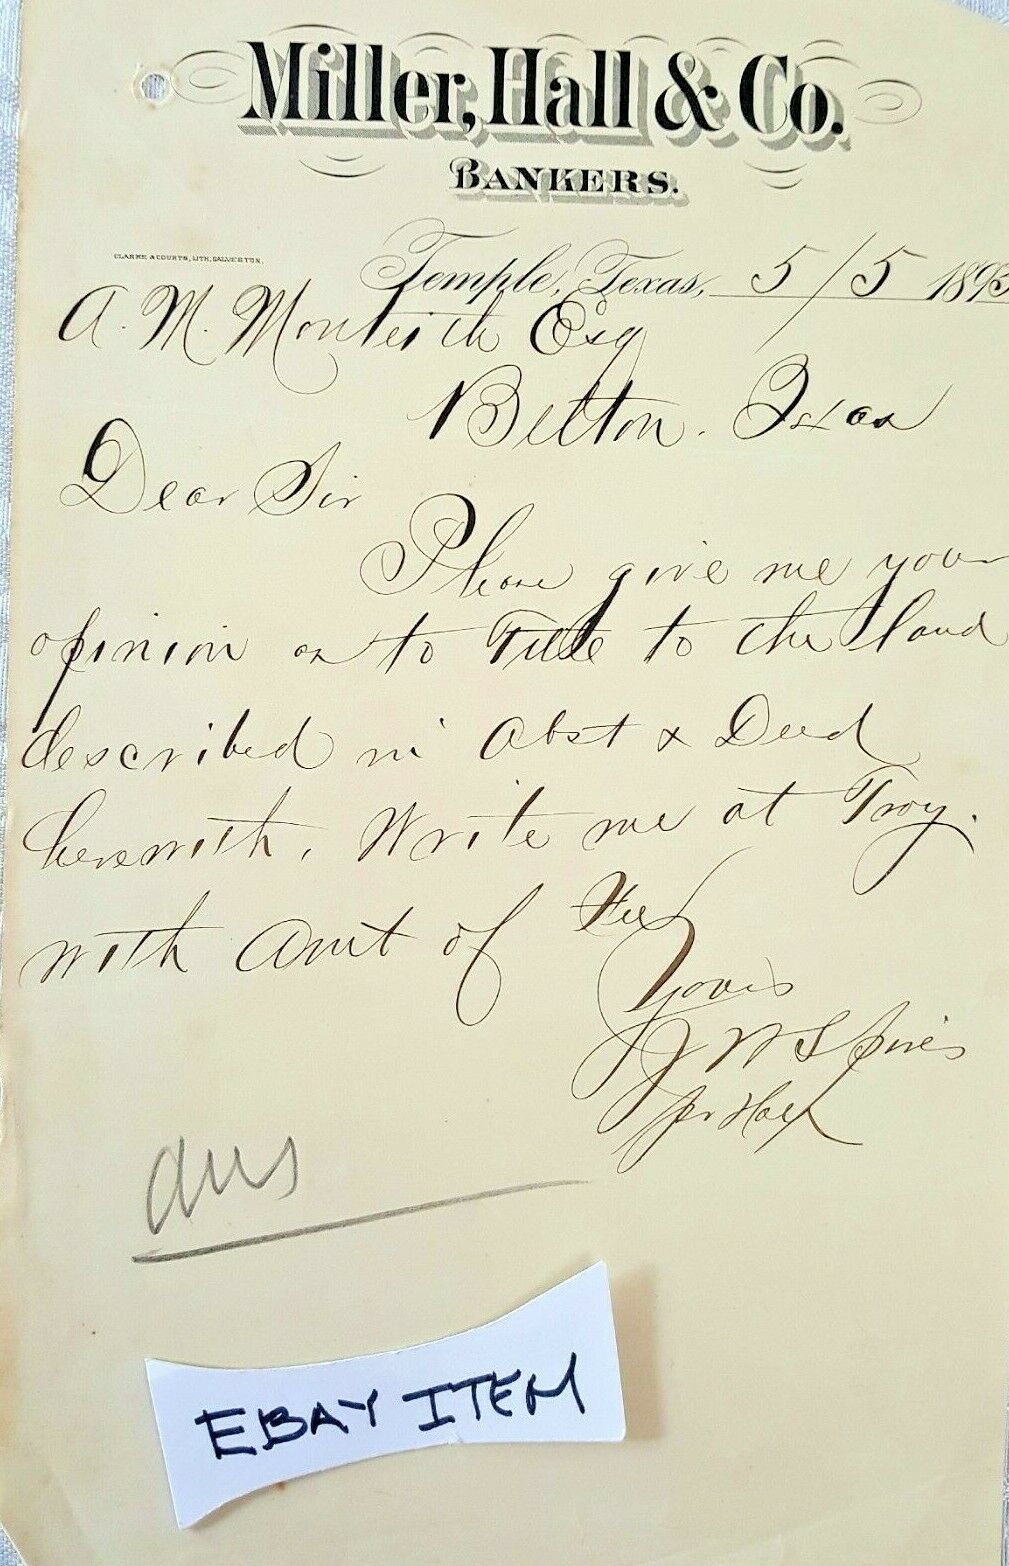 Miller, Hall & Co.
BANKERS.
CLARKE & COURTS, LITH, GALVESTON.
Temple, Texas, 5/5 1893
A. M. Monteith Esq
Belton. Texas
Dear Sir
Please give me your
opinion as to Title to the land
described in Abst & Deed
herewith. Write me at Troy.
with Amt of Fee
Yours
J W Spires
per
ans
EBAY ITEM